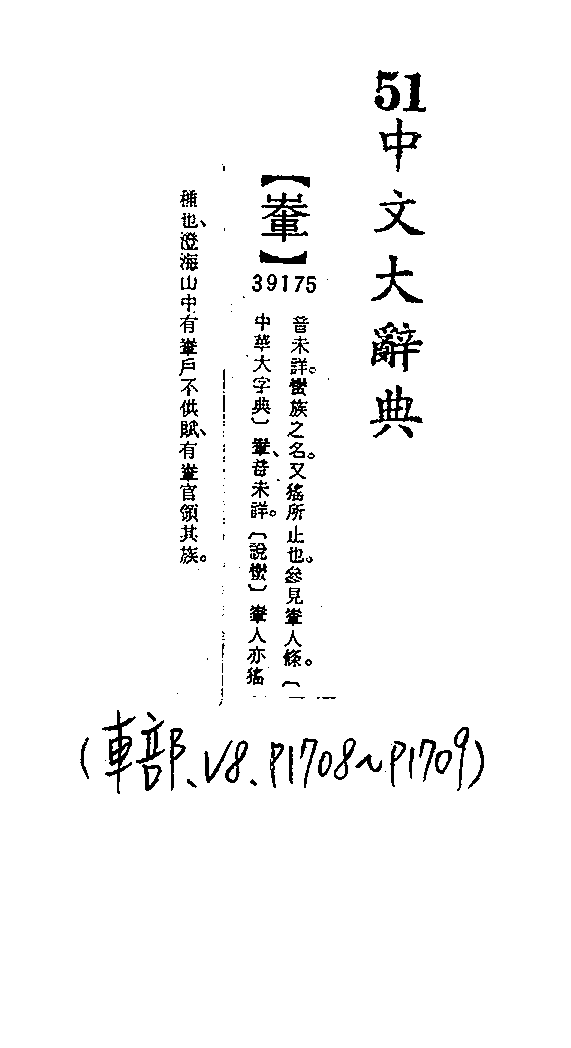 51中文大辭典
【輋】
39175
音未詳。蠻族之名。又猺所止也。參見輋人條。〔
中華大字典〕輋、音未詳。〔說蠻〕輋人亦猺
種也、澄海山中有輋戶不供賦、有輋官領其族。
(車部、V8、P1708~P1709)